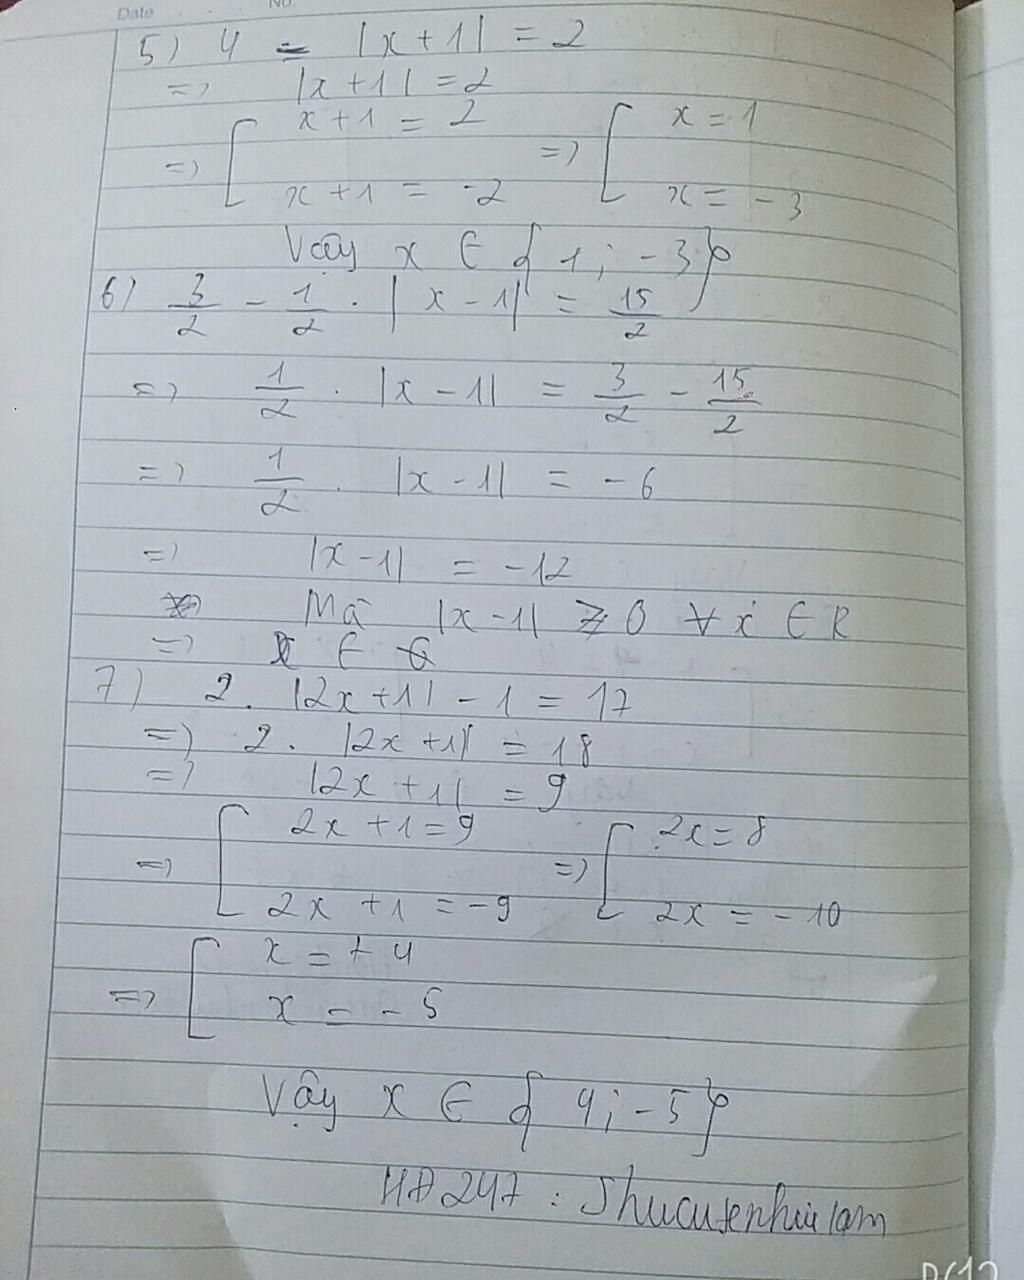 Date No.
5) 4 - |x+1| = 2
=> |x+1| = 2
x+1 = 2 x = 1
=> [ => [
x+1 = -2 x = -3
Vậy x ∈ { 1; -3}
6) 3/2 - 1/2 . |x-1| = 15/2
=> 1/2 . |x-1| = 3/2 - 15/2
=> 1/2 . |x-1| = -6
=> |x-1| = -12
Mà |x-1| ≥ 0 ∀ x ∈ R
=> x ∈
7) 2. |2x+1| - 1 = 17
=> 2. |2x+1| = 18
=> |2x+1| = 9
2x+1=9 2x=8
=> [ => [
2x+1=-9 2x = -10
x = +4
=> [
x = -5
Vậy x ∈ { 4; -5}
HD247 :